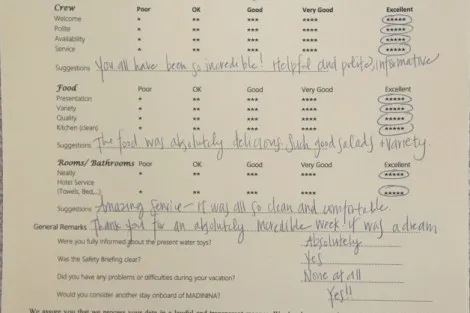 Crew Poor OK Good Very Good Excellent
Welcome * ** *** **** *****
Polite * ** *** **** *****
Availability * ** *** **** *****
Service * ** *** **** *****
Suggestions You all have been so incredible! Helpful and polite, informative
Food Poor OK Good Very Good Excellent
Presentation * ** *** **** *****
Variety * ** *** **** *****
Quality * ** *** **** *****
Kitchen (clean) * ** *** **** *****
Suggestions The food was absolutely delicious. Such good salads + variety.
Rooms/ Bathrooms Poor OK Good Very Good Excellent
Neatly * ** *** **** *****
Hotel Service
(Towels, Bed,..) * ** *** **** *****
Suggestions Amazing service - it was all so clean and comfortable.
General Remarks Thank you for an absolutely incredible week! it was a dream
Were you fully informed about the present water toys? Absolutely
Was the Safety Briefing clear? Yes
Did you have any problems or difficulties during your vacation? None at all
Would you consider another stay onboard of MADININA? Yes!!
We assure you that we process your data in a lawful and transparent